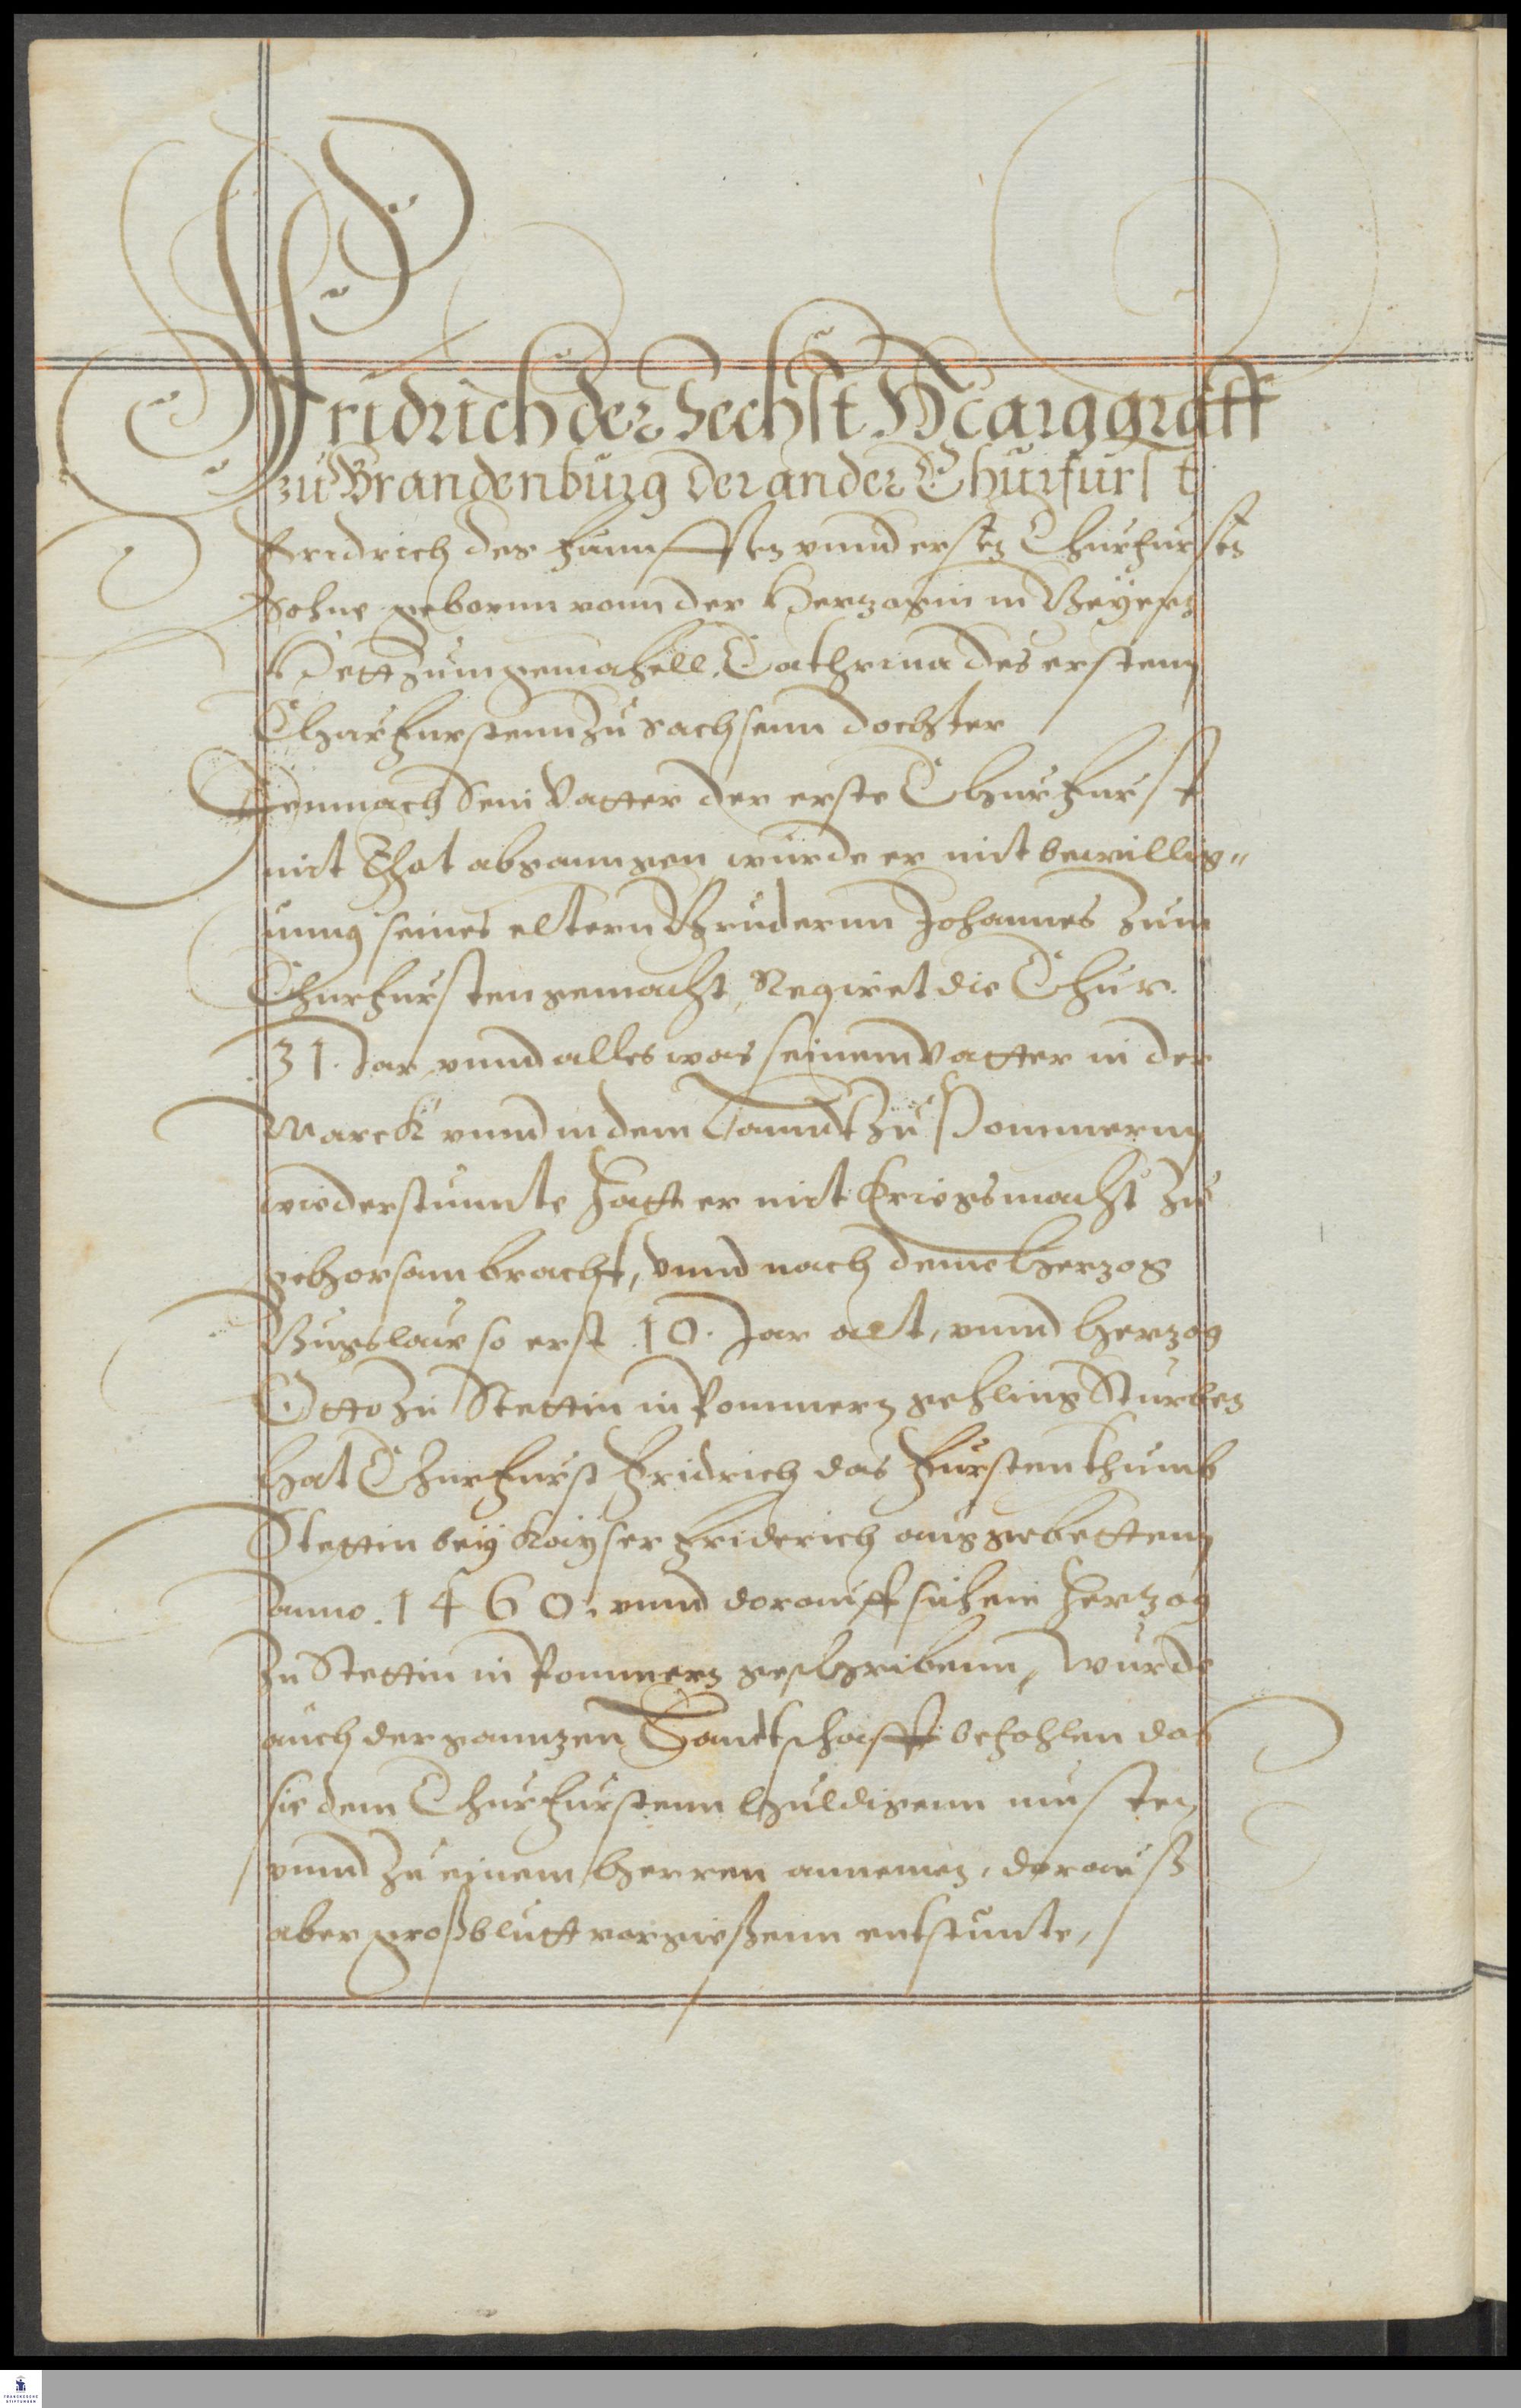 Fridrich der Sechst Marggraff
zu Brandenburg der ander Churfurst
Fridrich des Fünfften vnnd ersten Churfürsten
Sohne gebornn vonn der Hertzogin in Beyern
Hett zum gemahell, Cathrina des erstenn
Churfurstenn zu Sachsenn dochter
Demnach Sein Vatter der erste Churfurst
mit Thot abgangen wurde er mit bewillig„
unng seines eltern Brudernn Johannes zum
Churfursten gemacht, Regiret die Chur.
31. Jar vnnd alles was seinem Vatter in der
Marck vnnd in dem Lanndt zu Pommernn
wiederstunnte hatt er mit Kriegsmacht zu
gehorsam bracht, vnnd nach deme Herzog
Bugslaw so erst 10. Jar alt, vnnd Herzog
Otto zu Stettin in Pommern gehling Sturben
Hat Churfurst Fridrich das Furstenthumb
Stettin bey Kayser Friderich ausgebettenn
anno. 1460. vnnd darauff sich ein Hertzog
zu Stettin in Pommern geschribenn, wurde
auch der ganntzen Landtschafft befohlen das
sie dem Churfurstenn Huldigenn musten
vnnd zu einem Herren annemen, darauß
aber groß blutt vorgießenn entstunte,